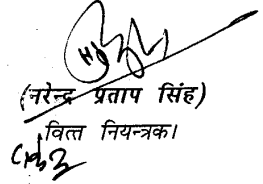 (नरेन्द्र प्रताप सिंह)
वित्त नियन्त्रक।